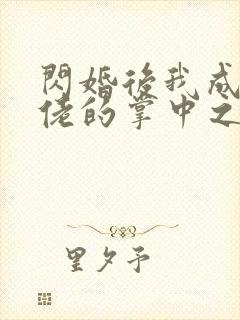 閃婚後我成
佬的掌中之
里夕予